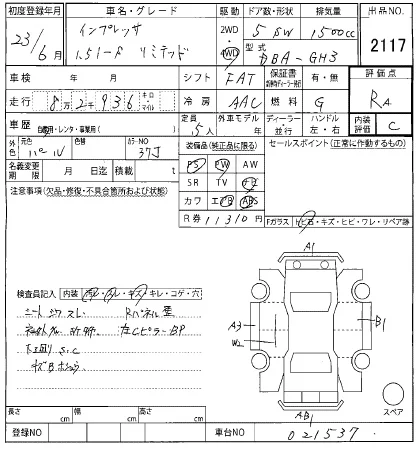 初度登録年月 車名・グレード 駆動 ドア数・形状 排気量 出品NO.
23/6月 インプレッサ 2WD 4WD 5 SW 1500cc 2117
1.5i-S リミテッド 型式 DBA-GH3
車検 年 月 シフト FAT 保証書 有・無 評価点
走行 8万2千936 キロ マイル 冷房 AAC 燃料 G RA
車歴 自家用・レンタ・事業用( ) 定員 5人 外車モデル 年 ディーラー・並行 ハンドル 左・右 内装評価 C
外色 元色 パール 色替 カラーNO 37J 装備品(純正品に限る) セールスポイント(正常に作動するもの)
名義変更期限 月 日迄 積載 t PS PW AW
注意事項(欠品・修復・不具合箇所および状態) SR TV ナビ
カワ エアB ABS
R券 11310円 Fガラス トビ石・キズ・ヒビ・ワレ・リペア跡
A1
検査員記入 内装 汚レ・スレ・キズ・キレ・コゲ・穴
シートシワスレ Rパネル歪
左CピラーBP
下廻りS.C
キズB
A3
W2
B1
AB1
スペア
長さ cm 幅 cm 高さ cm
登録NO 車台NO 021537